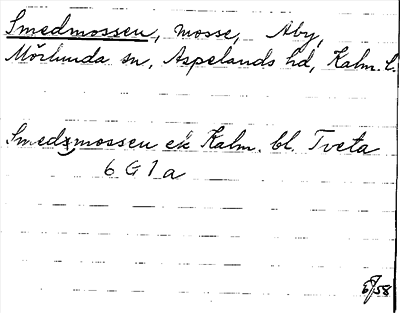 Smedmossen, mosse, Åby,
Mörlunda sn, Aspelands hd, Kalm. l.
Smedmossen ek Kalm. bl. Tveta
6 G 1 a
58